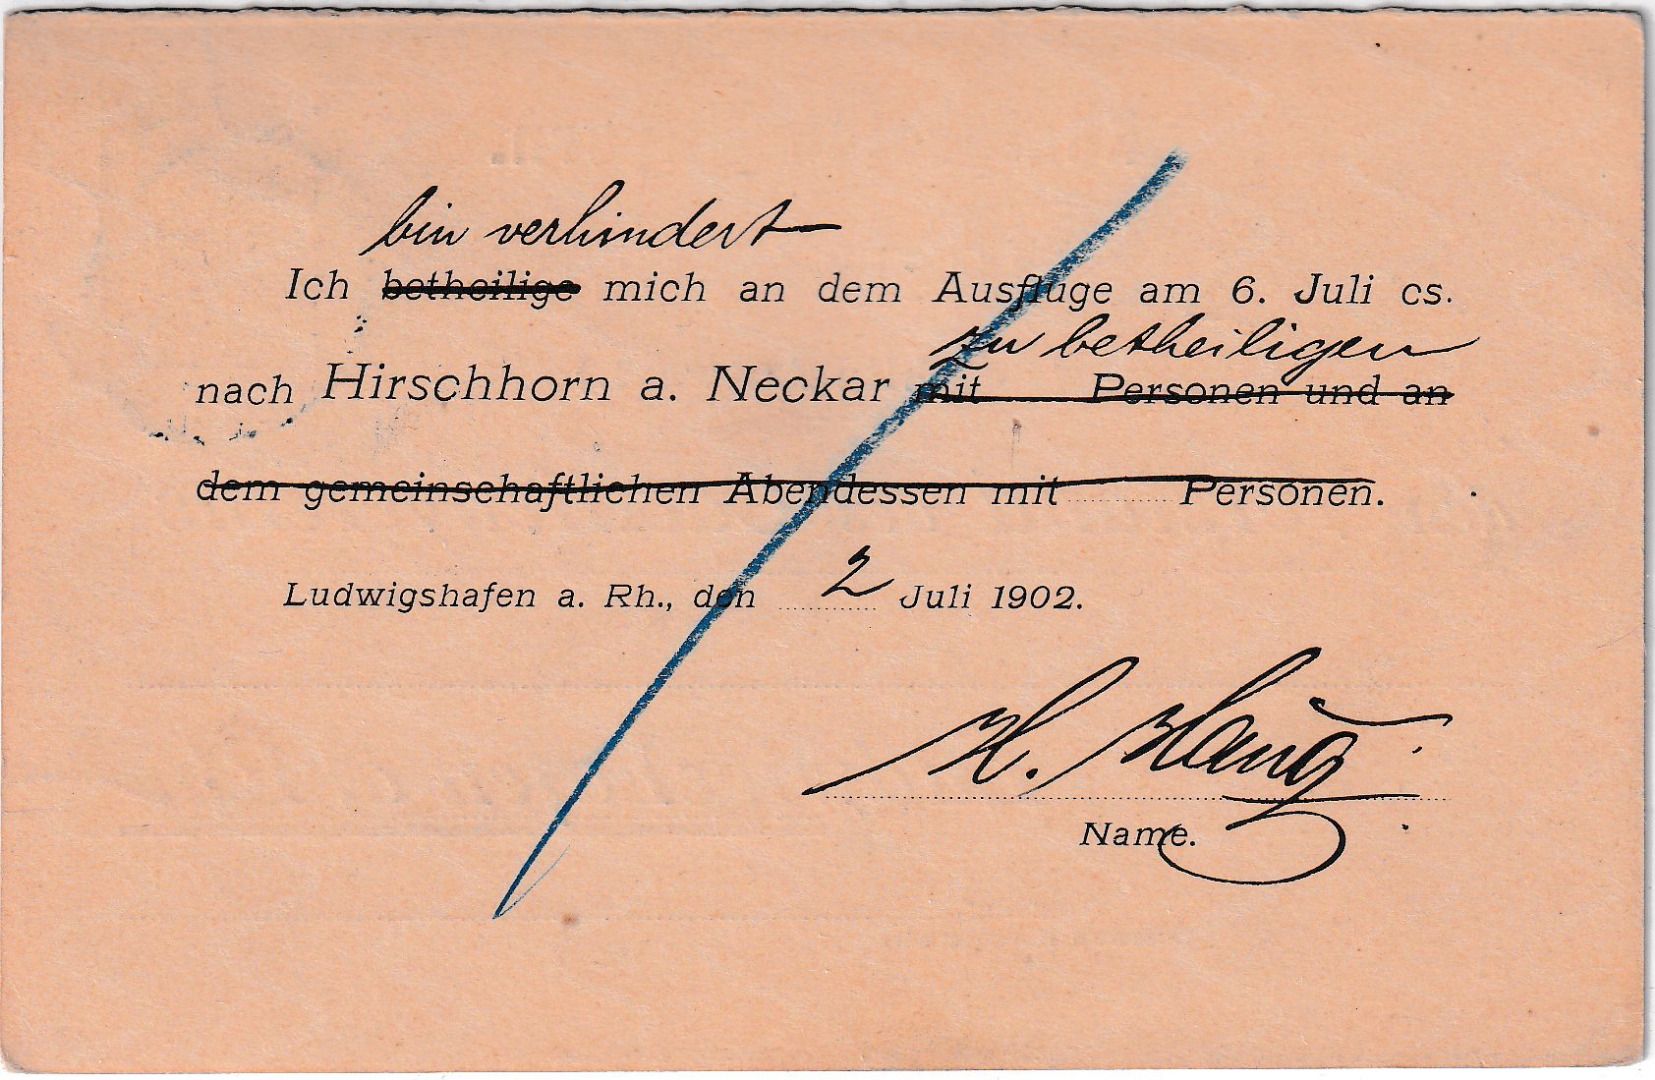 bin verhindert
Ich betheilige mich an dem Ausfluge am 6. Juli cs.
zu betheiligen
nach Hirschhorn a. Neckar mit Personen und an
dem gemeinschaftlichen Abendessen mit Personen.
Ludwigshafen a. Rh., den 2 Juli 1902.
H. Haug
Name.